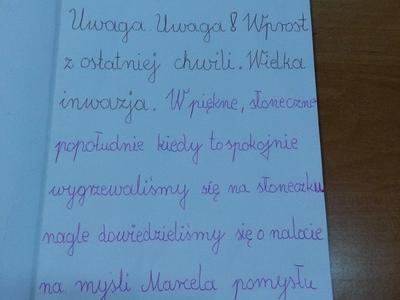 Uwaga. Uwaga! Wprost
z ostatniej chwili. Wielka
inwazja. W piękne, słoneczne
popołudnie kiedy to spokojnie
wygrzewaliśmy się na słoneczku
nagle dowiedzieliśmy się o nalocie
na myśli Marcela pomysłu